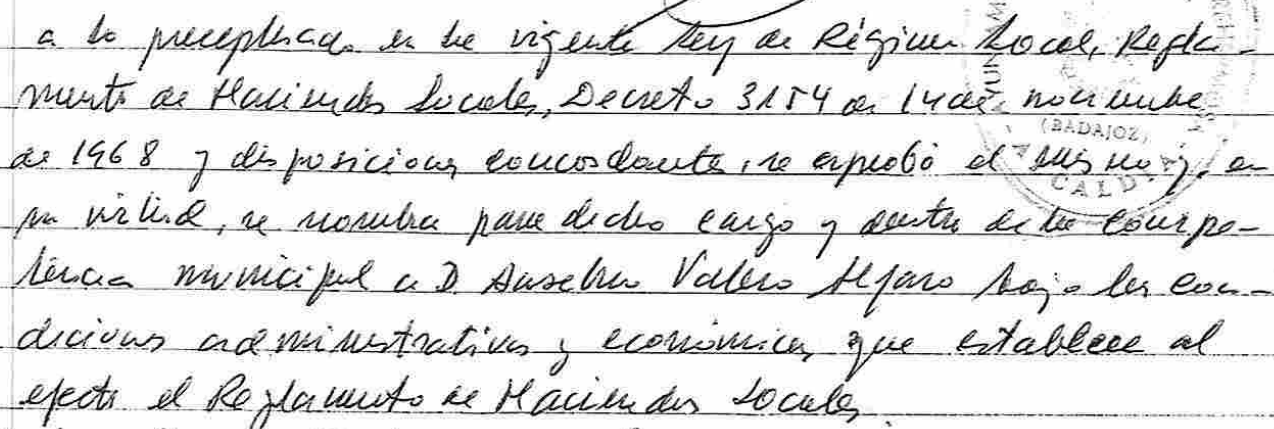 a lo preceptuado en la vigente Ley de Régimen Local, Regla-
mento de Haciendas Locales, Decreto 3154 de 14 de noviembre
de 1968 y disposiciones concordantes, se aprobó el mismo y, en
su virtud, se nombra para dicho cargo y dentro de la compe-
tencia municipal a D. Anselmo Valero Alfaro bajo las con-
diciones administrativas y económicas que establece al
efecto el Reglamento de Haciendas Locales.
(BADAJOZ)